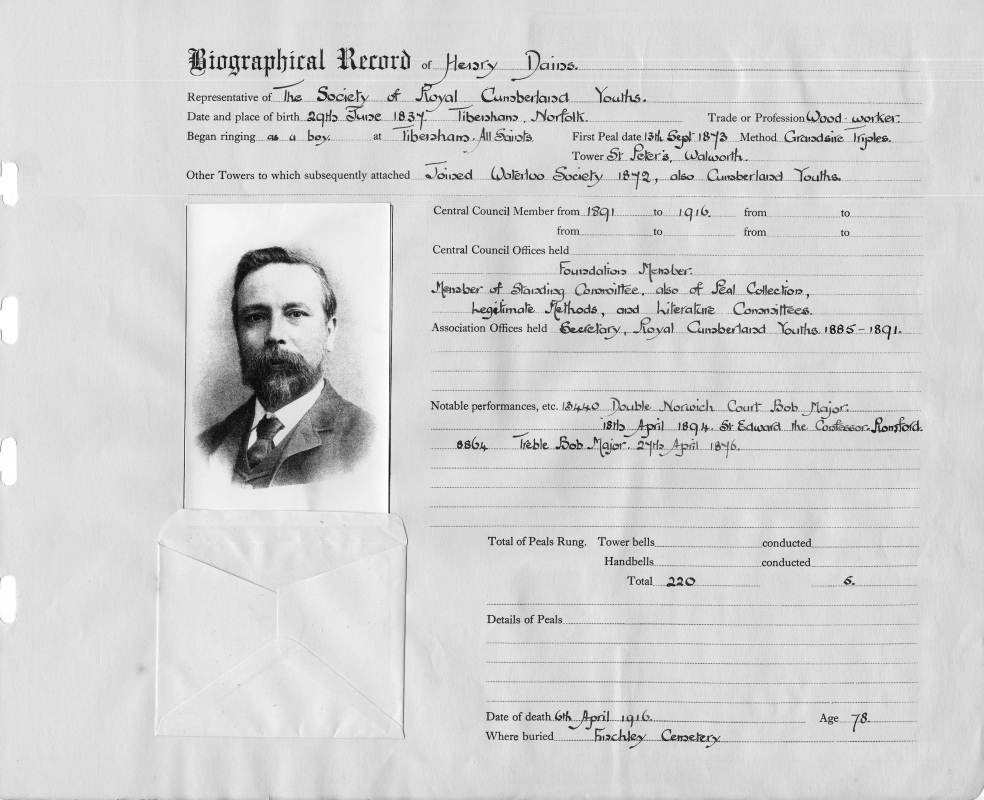 Biographical Record of Henry Dains.
Representative of The Society of Royal Cumberland Youths.
Date and place of birth 29th June 1837 Tibenham, Norfolk. Trade or Profession Wood-worker.
Began ringing as a boy. at Tibenham, All Saints. First Peal date 13th Sept 1873 Method Grandsire Triples.
Tower St Peter's, Walworth.
Other Towers to which subsequently attached Joined Waterloo Society 1872, also Cumberland Youths.
Central Council Member from 1891 to 1916. from to
from to from to
Central Council Offices held
Foundation Member.
Member of Standing Committee, also of Peal Collection,
Legitimate Methods, and Literature Committees.
Association Offices held Secretary, Royal Cumberland Youths 1885-1891.
Notable performances, etc. 13440 Double Norwich Court Bob Major.
18th April 1894. St Edward the Confessor. Romford.
8864 Treble Bob Major. 27th April 1876.
Total of Peals Rung. Tower bells conducted
Handbells conducted
Total 220 5.
Details of Peals
Date of death 6th April 1916. Age 78.
Where buried Finchley Cemetery